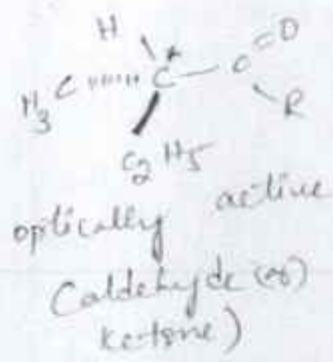 H
H3C C* C O
R
C2H5
optically active
(aldehyde (or)
ketone)